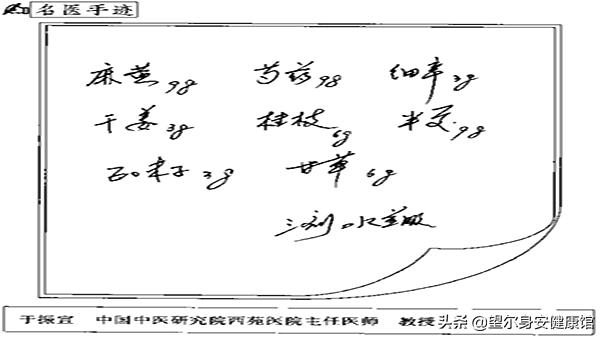 名医手迹
麻黄9g 芍药9g 细辛3g
干姜3g 桂枝6g 半夏9g
五味子3g 甘草6g
三剂 水煎服
于振宣 中国中医研究院西苑医院主任医师 教授
头条@望尔身安健康馆